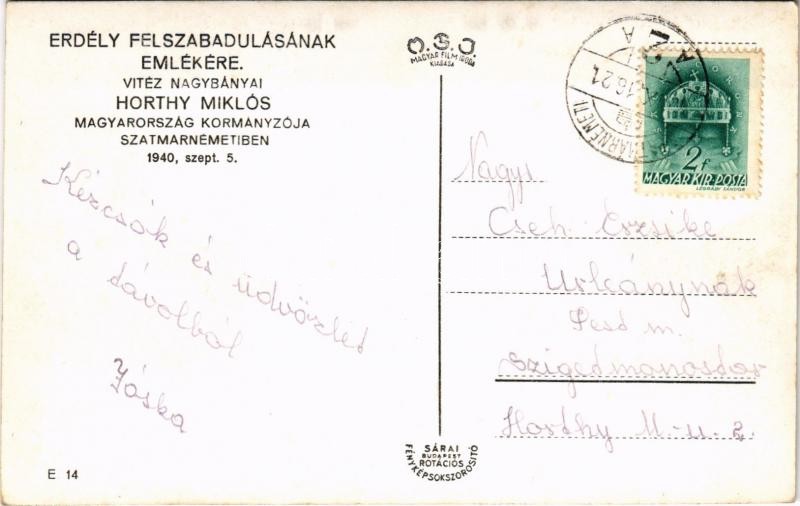 ERDÉLY FELSZABADULÁSÁNAK
EMLÉKÉRE.
VITÉZ NAGYBÁNYAI
HORTHY MIKLÓS
MAGYARORSZÁG KORMANYZÓJA
SZATMARNÉMETIBEN
1940, szept. 5.
Kézcsók és üdvözlet
a távolból
Jóska
E 14
M.F.I.
MAGYAR FILM IRODA
KIADÁSA
SÁRAI
BUDAPEST
ROTÁCIÓS
FÉNYKÉPSOKSZOROSITÓ
2f
MAGYAR KIR. POSTA
LÉGRÁDY SÁNDOR
Nagys
Cseh Erzsike
Urleánynak
Pest m.
Szigetmonostor
Horthy M. u. 2.